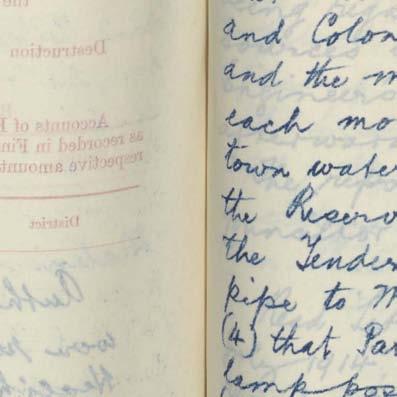 the
Destruction
Accounts of
as recorded in Fin
respective amount
District
and Colon
and the m
each mo
town water
the Reserv
the Tender
pipe to W
(4) that Par
lamp pos